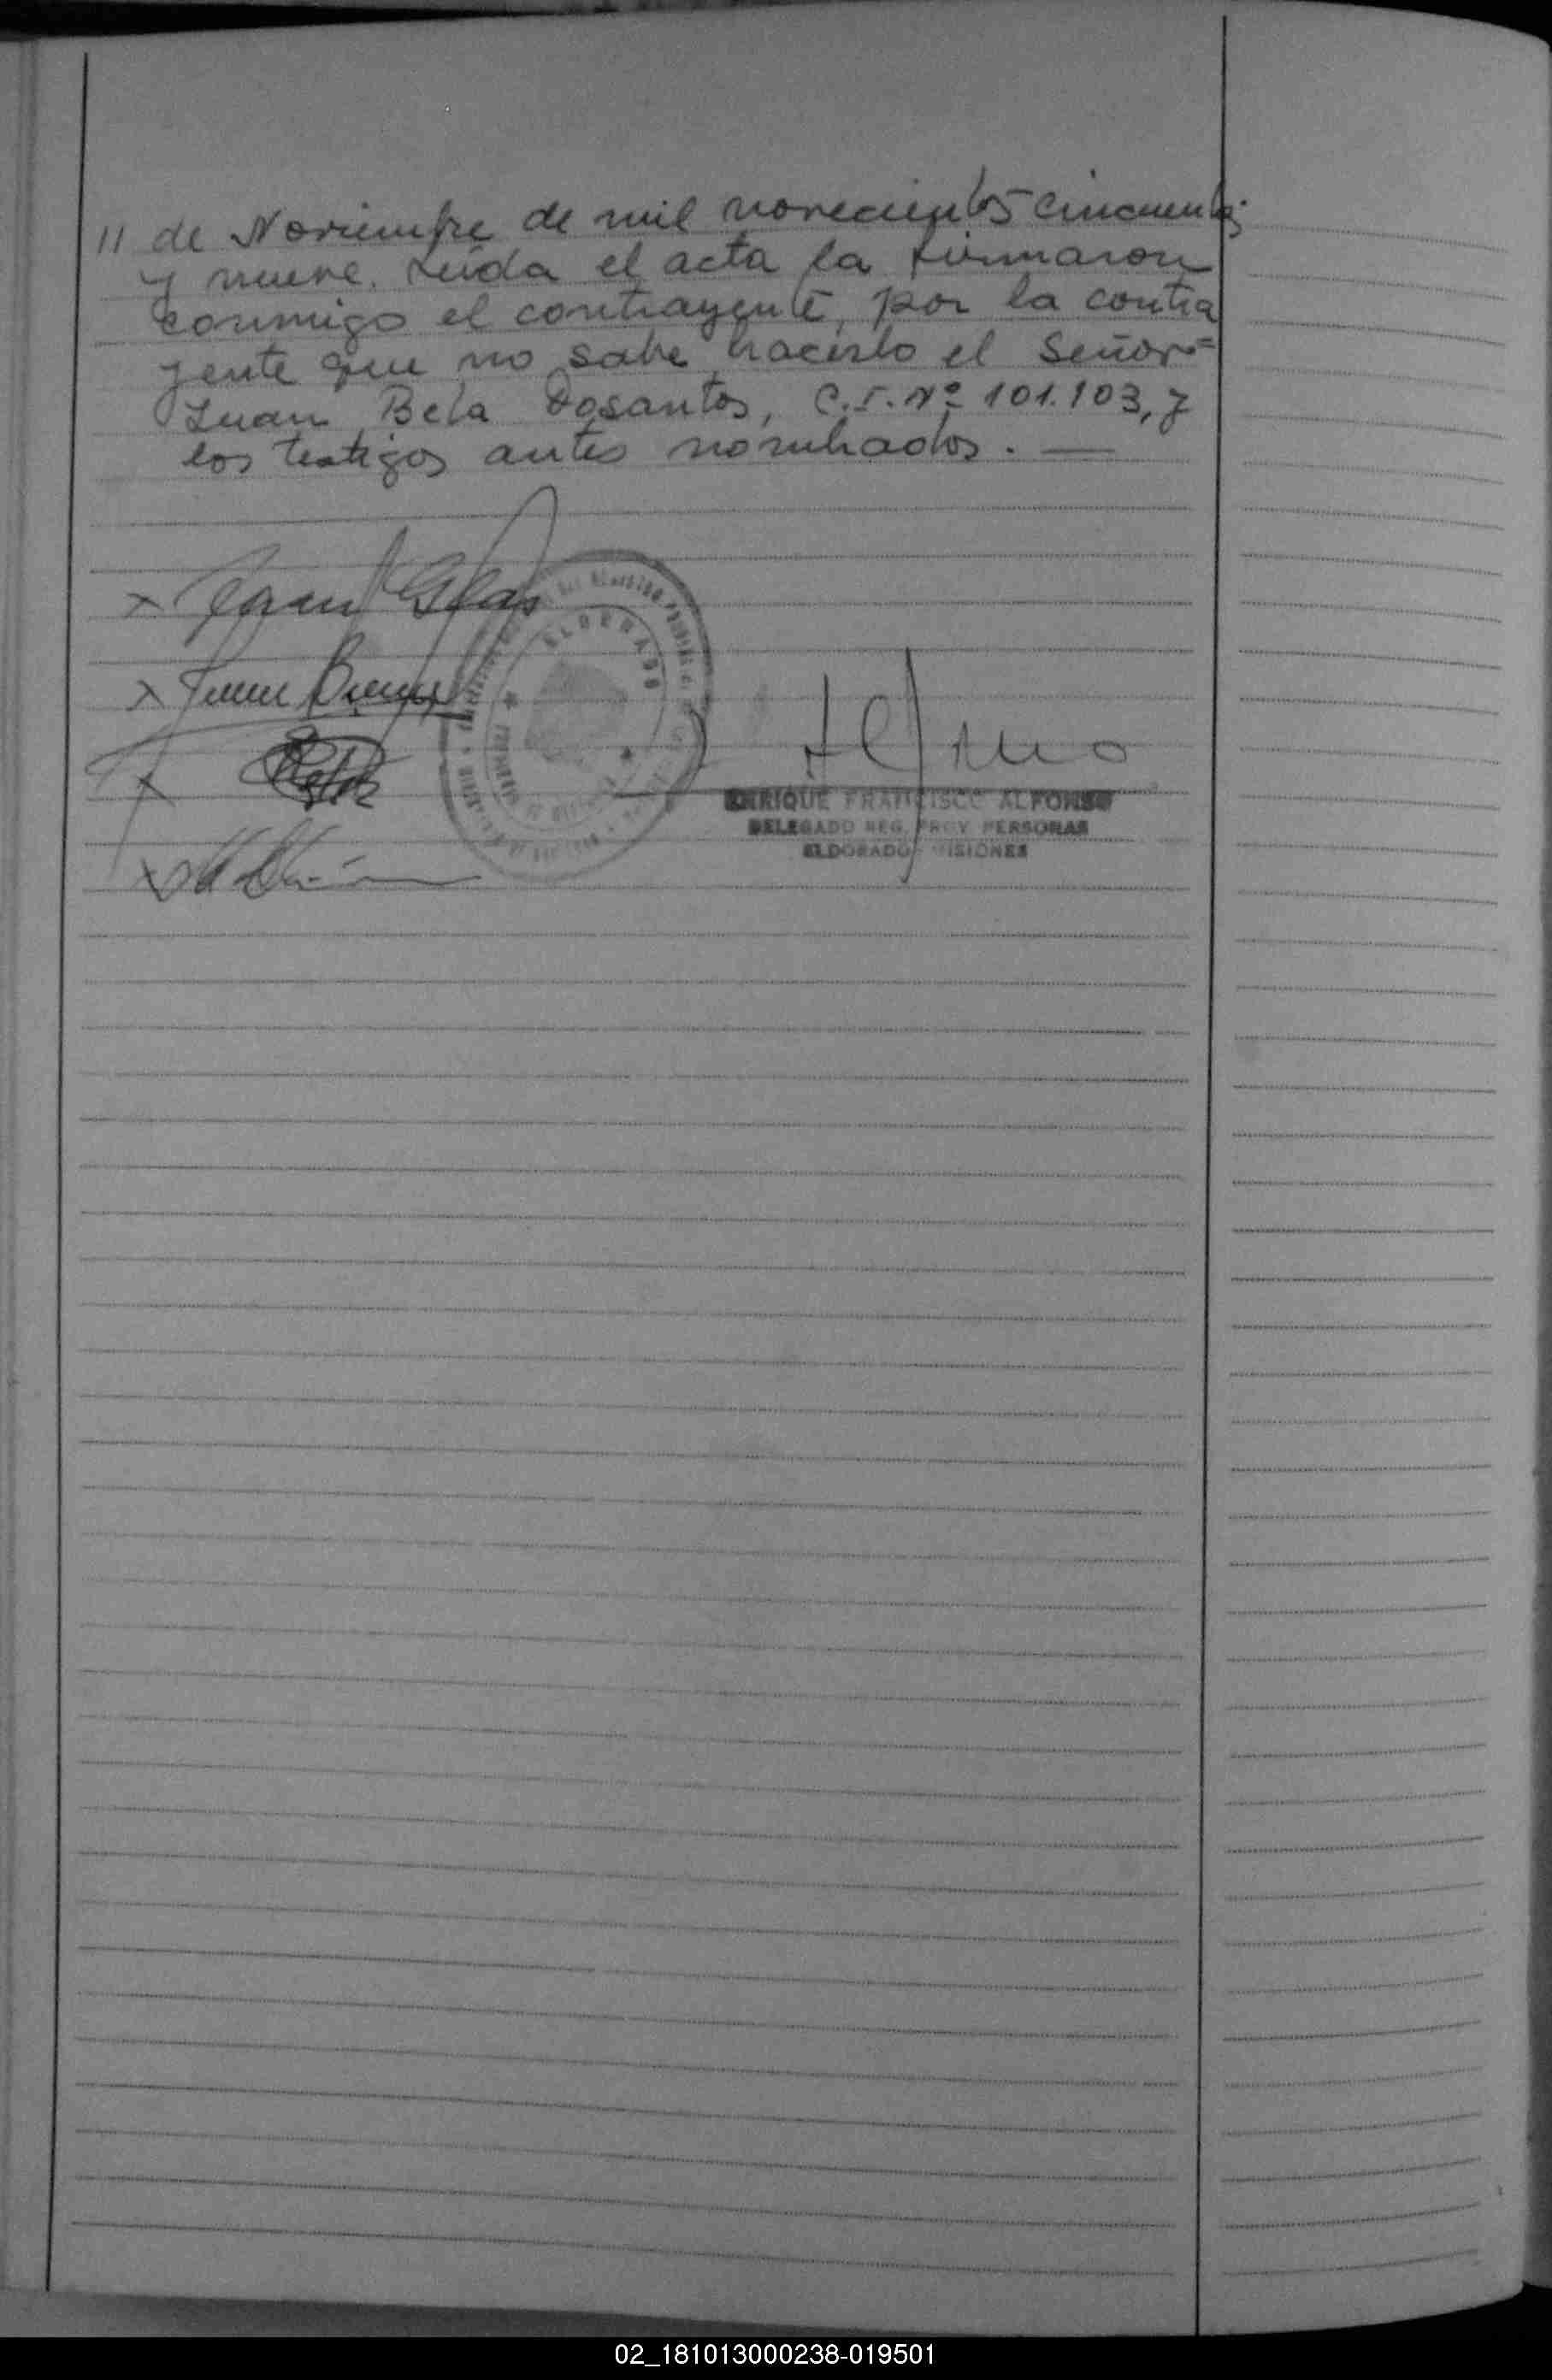 11 de Noviembre de mil novecientos cincuenta
y nueve. Leída el acta la firmaron
conmigo el contrayente, por la contra
yente que no sabe hacerlo el Señor=
Juan Bela Dosantos, C.I. Nº 101.103, y
los testigos antes nombrados. —
x Juan
x
ELDORADO
x
ENRIQUE FRANCISCO ALFONSO
DELEGADO REG. PROV PERSONAS
ELDORADO - MISIONES
x
02_181013000238-019501